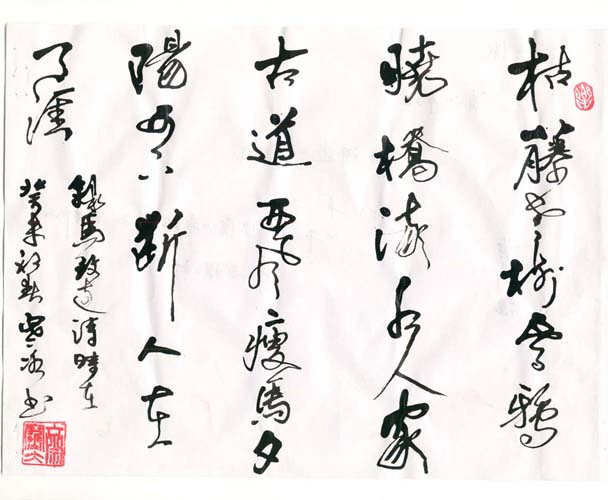 枯藤老树昏鴉
曉橋流水人家
古道西风瘦馬夕
陽西下断人在
天涯
錄馬致远詩時在
癸未初书